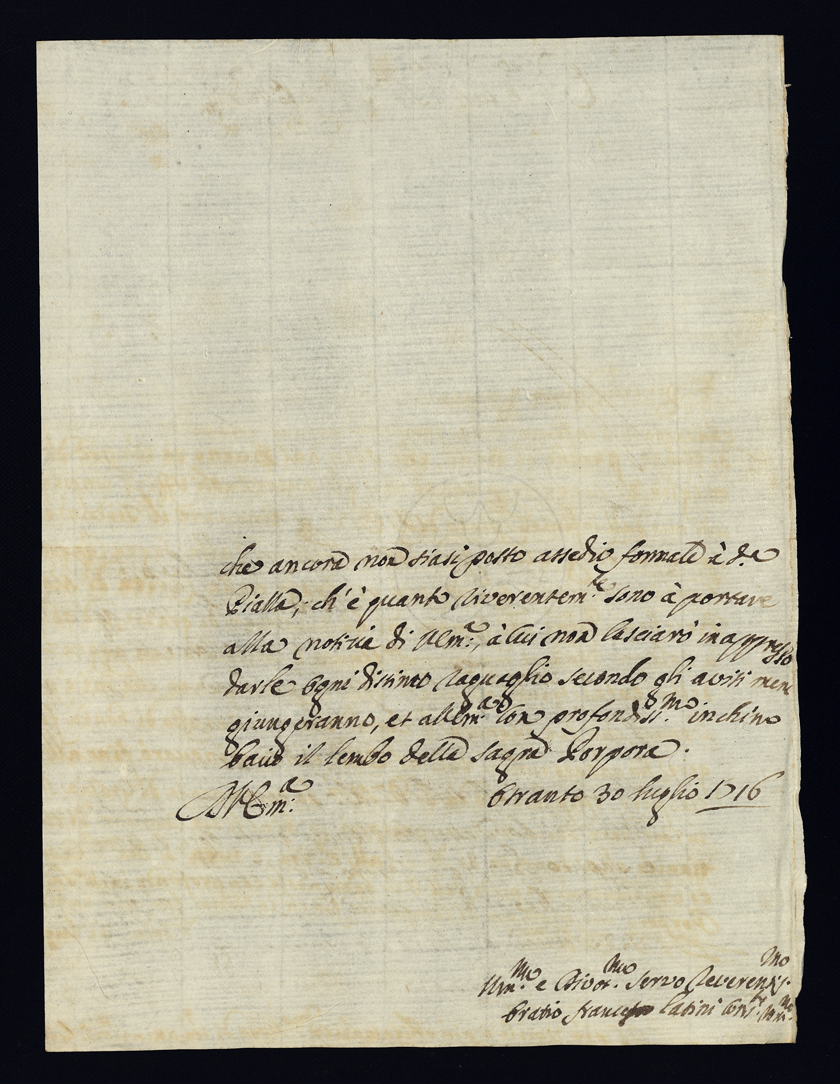 che ancora non siasi posto assedio formale à d.a
Pialla, ch'è quanto riverentem.te sono à portare
alla notitia di V Em:a, à cui non lasciarò in appresso
darle ogni distinto raguaglio secondo gli avisi mene
giungeranno, et all Em:a con profondiss.mo inchino
bacio il lembo della sagra Porpora.
D V Em:a Otranto 30 luglio 1716
Um:mo e Divot.mo servo Reverentis.mo
Oratio Francesco Latini